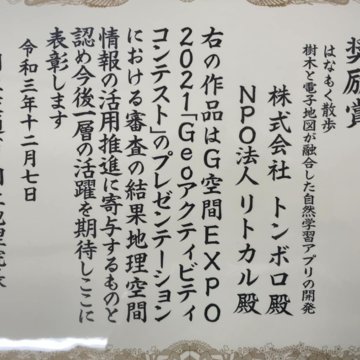 奨励賞
はなもく散歩
樹木と電子地図が融合した自然学習アプリの開発
株式会社 トンボロ殿
NPO法人 リトカル殿
右の作品はG空間EXPO
2021「Geoアクティビティ
コンテスト」のプレゼンテーション
における審査の結果地理空間
情報の活用推進に寄与するものと
認め今後一層の活躍を期待しここに
表彰します
令和三年十二月七日